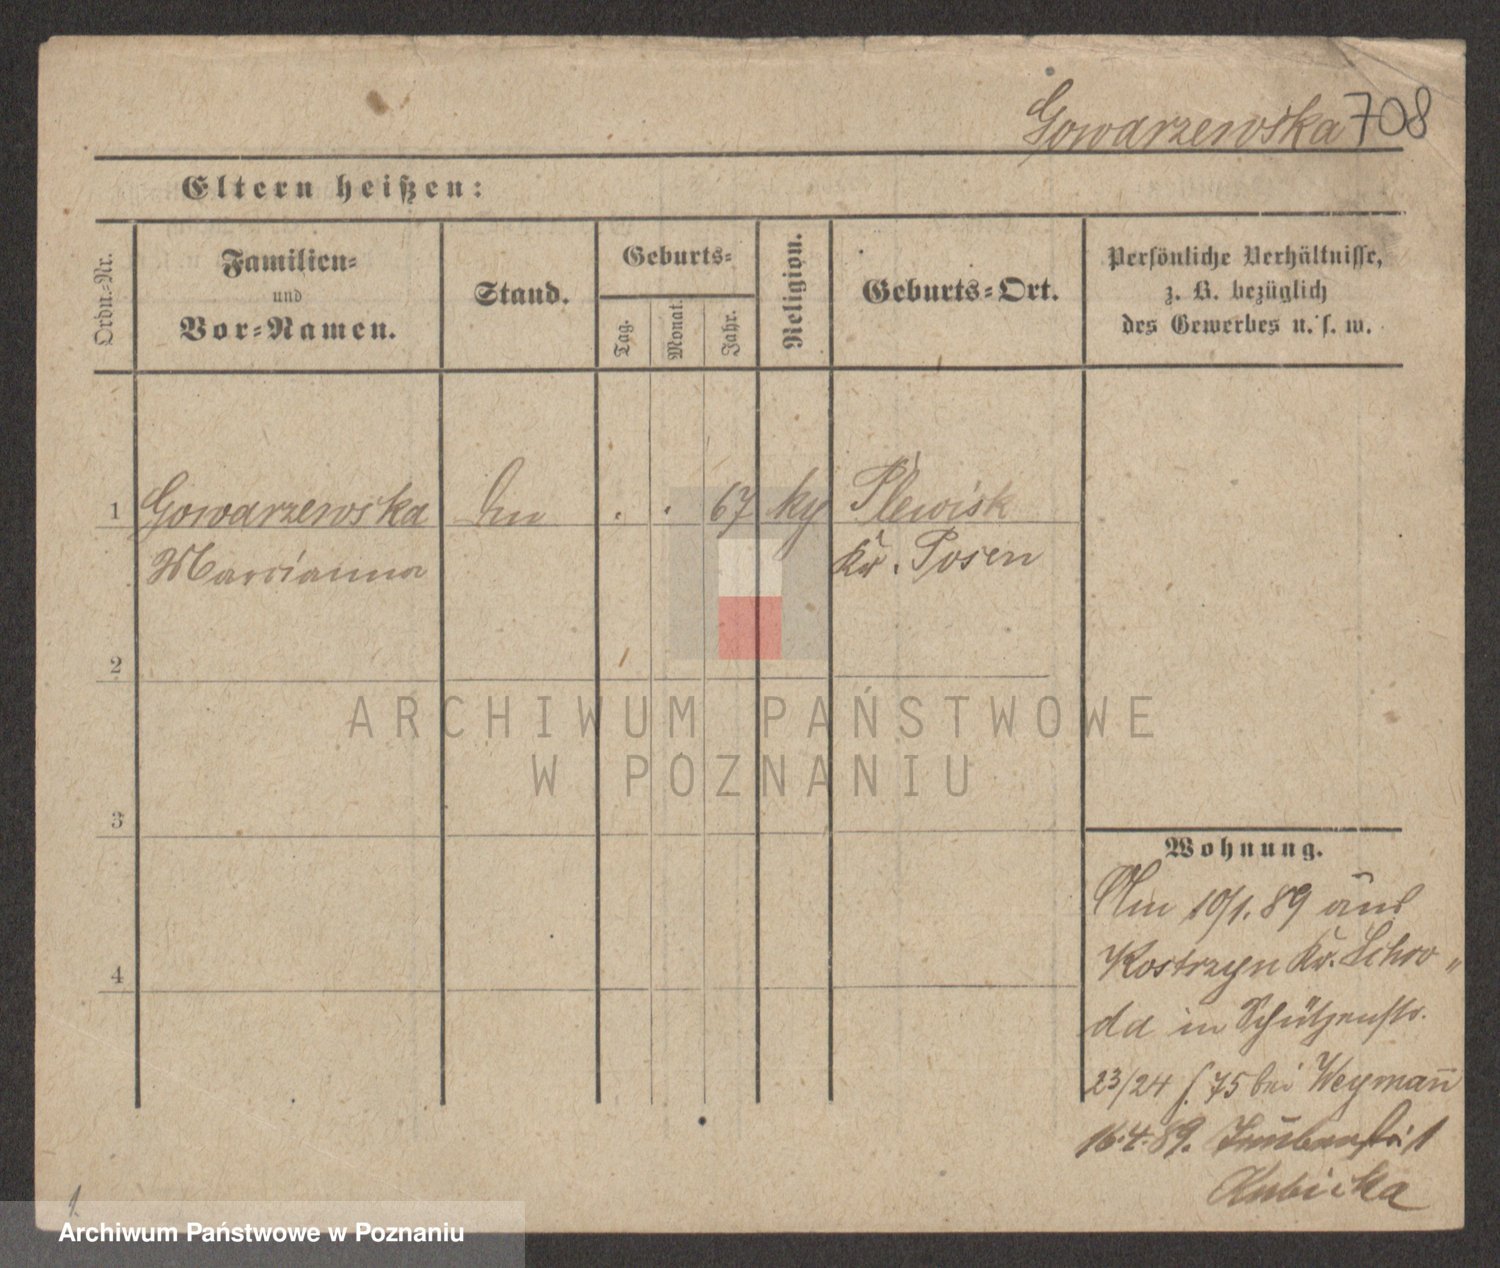 Gowarzewska 708
Eltern heißen:
Ordn.-Nr.
Familien-
und
Vor-Namen.
Stand.
Geburts-
Tag.
Monat.
Jahr.
Religion.
Geburts-Ort.
Persönliche Verhältnisse,
z. B. bezüglich
des Gewerbes u. s. w.
1 Gowarzewska . . 67 Plewisk
Marianna Kr. Posen
2
3
4
Wohnung.
Am 10/1. 89 aus
Kostrzyn Kr. Schro „
da in Schützenstr.
23/24 f. 75 bei Weyman̄
16.4.89. Taubenstr. 1
Kubicka
1.
ARCHIWUM PAŃSTWOWE
W POZNANIU
Archiwum Państwowe w Poznaniu